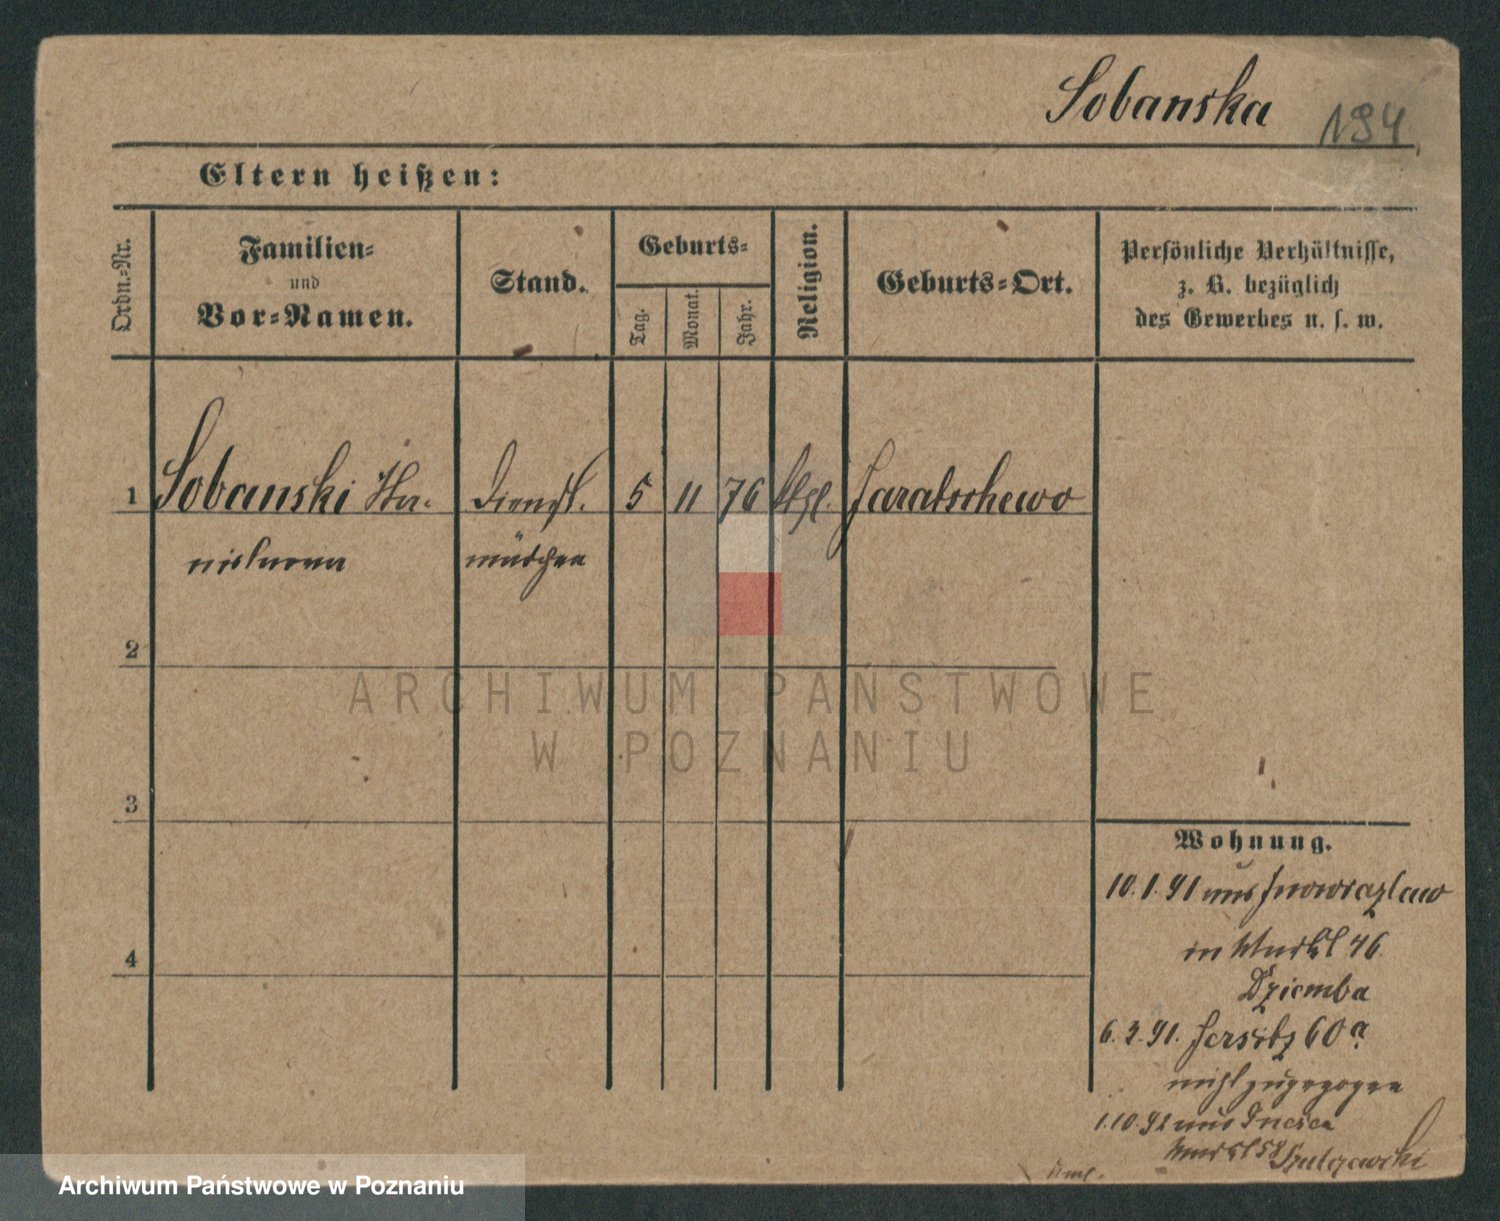 Sobanska 194
Eltern heißen:
Ordn.-Nr.
Familien-
und
Vor-Namen.
Stand.
Geburts-
Tag.
Monat.
Jahr.
Religion.
Geburts-Ort.
Persönliche Verhältnisse,
z. B. bezüglich
des Gewerbes u. s. w.
1 Sobanski Sta- Dienst- 5 11 76 ktʒl. Jaratschewo
nislawa mädchen
2
3
4
Wohnung.
10.1.91 aus Inowrazlaw
in Markt 46
Dziemba
6.3.91. Jersitz 60a
nicht zugezogen
1.10.92 aus Gnesen
Markt 58
ARCHIWUM PAŃSTWOWE
W POZNANIU
Archiwum Państwowe w Poznaniu